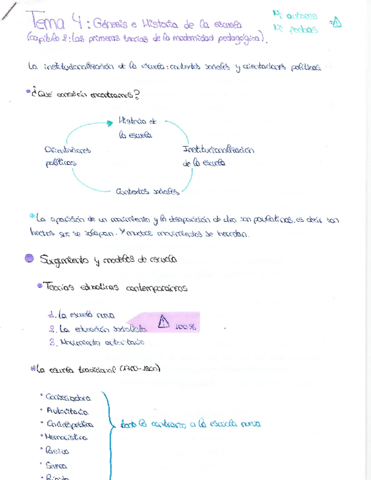 Tema 4: Génesis e Historia de la escuela
(capítulo 2: las primeras teorías de la modernidad pedagógica).
Ni autores
Ni fechas
La institucionalización de la escuela: contextos sociales y orientaciones políticas.
¿Qué conexión encontramos?
Historia de
la escuela
Orientaciones
políticas
Institucionalización
de la escuela
Contextos sociales
La aparición de un movimiento y la desaparición de otro son paulatinas, es decir son
hechos que se solapan. Y muchos movimientos se heredan.
Surgimiento y modelos de escuela
Teorías educativas contemporáneas
1. La escuela nueva
2. La educación socialista
100%
3. Movimiento autoritario
La escuela tradicional (1700-1800)
Conservadora
Autoritaria
Memorística
Pasiva
Seria
Rígida
todo lo contrario a la escuela nueva